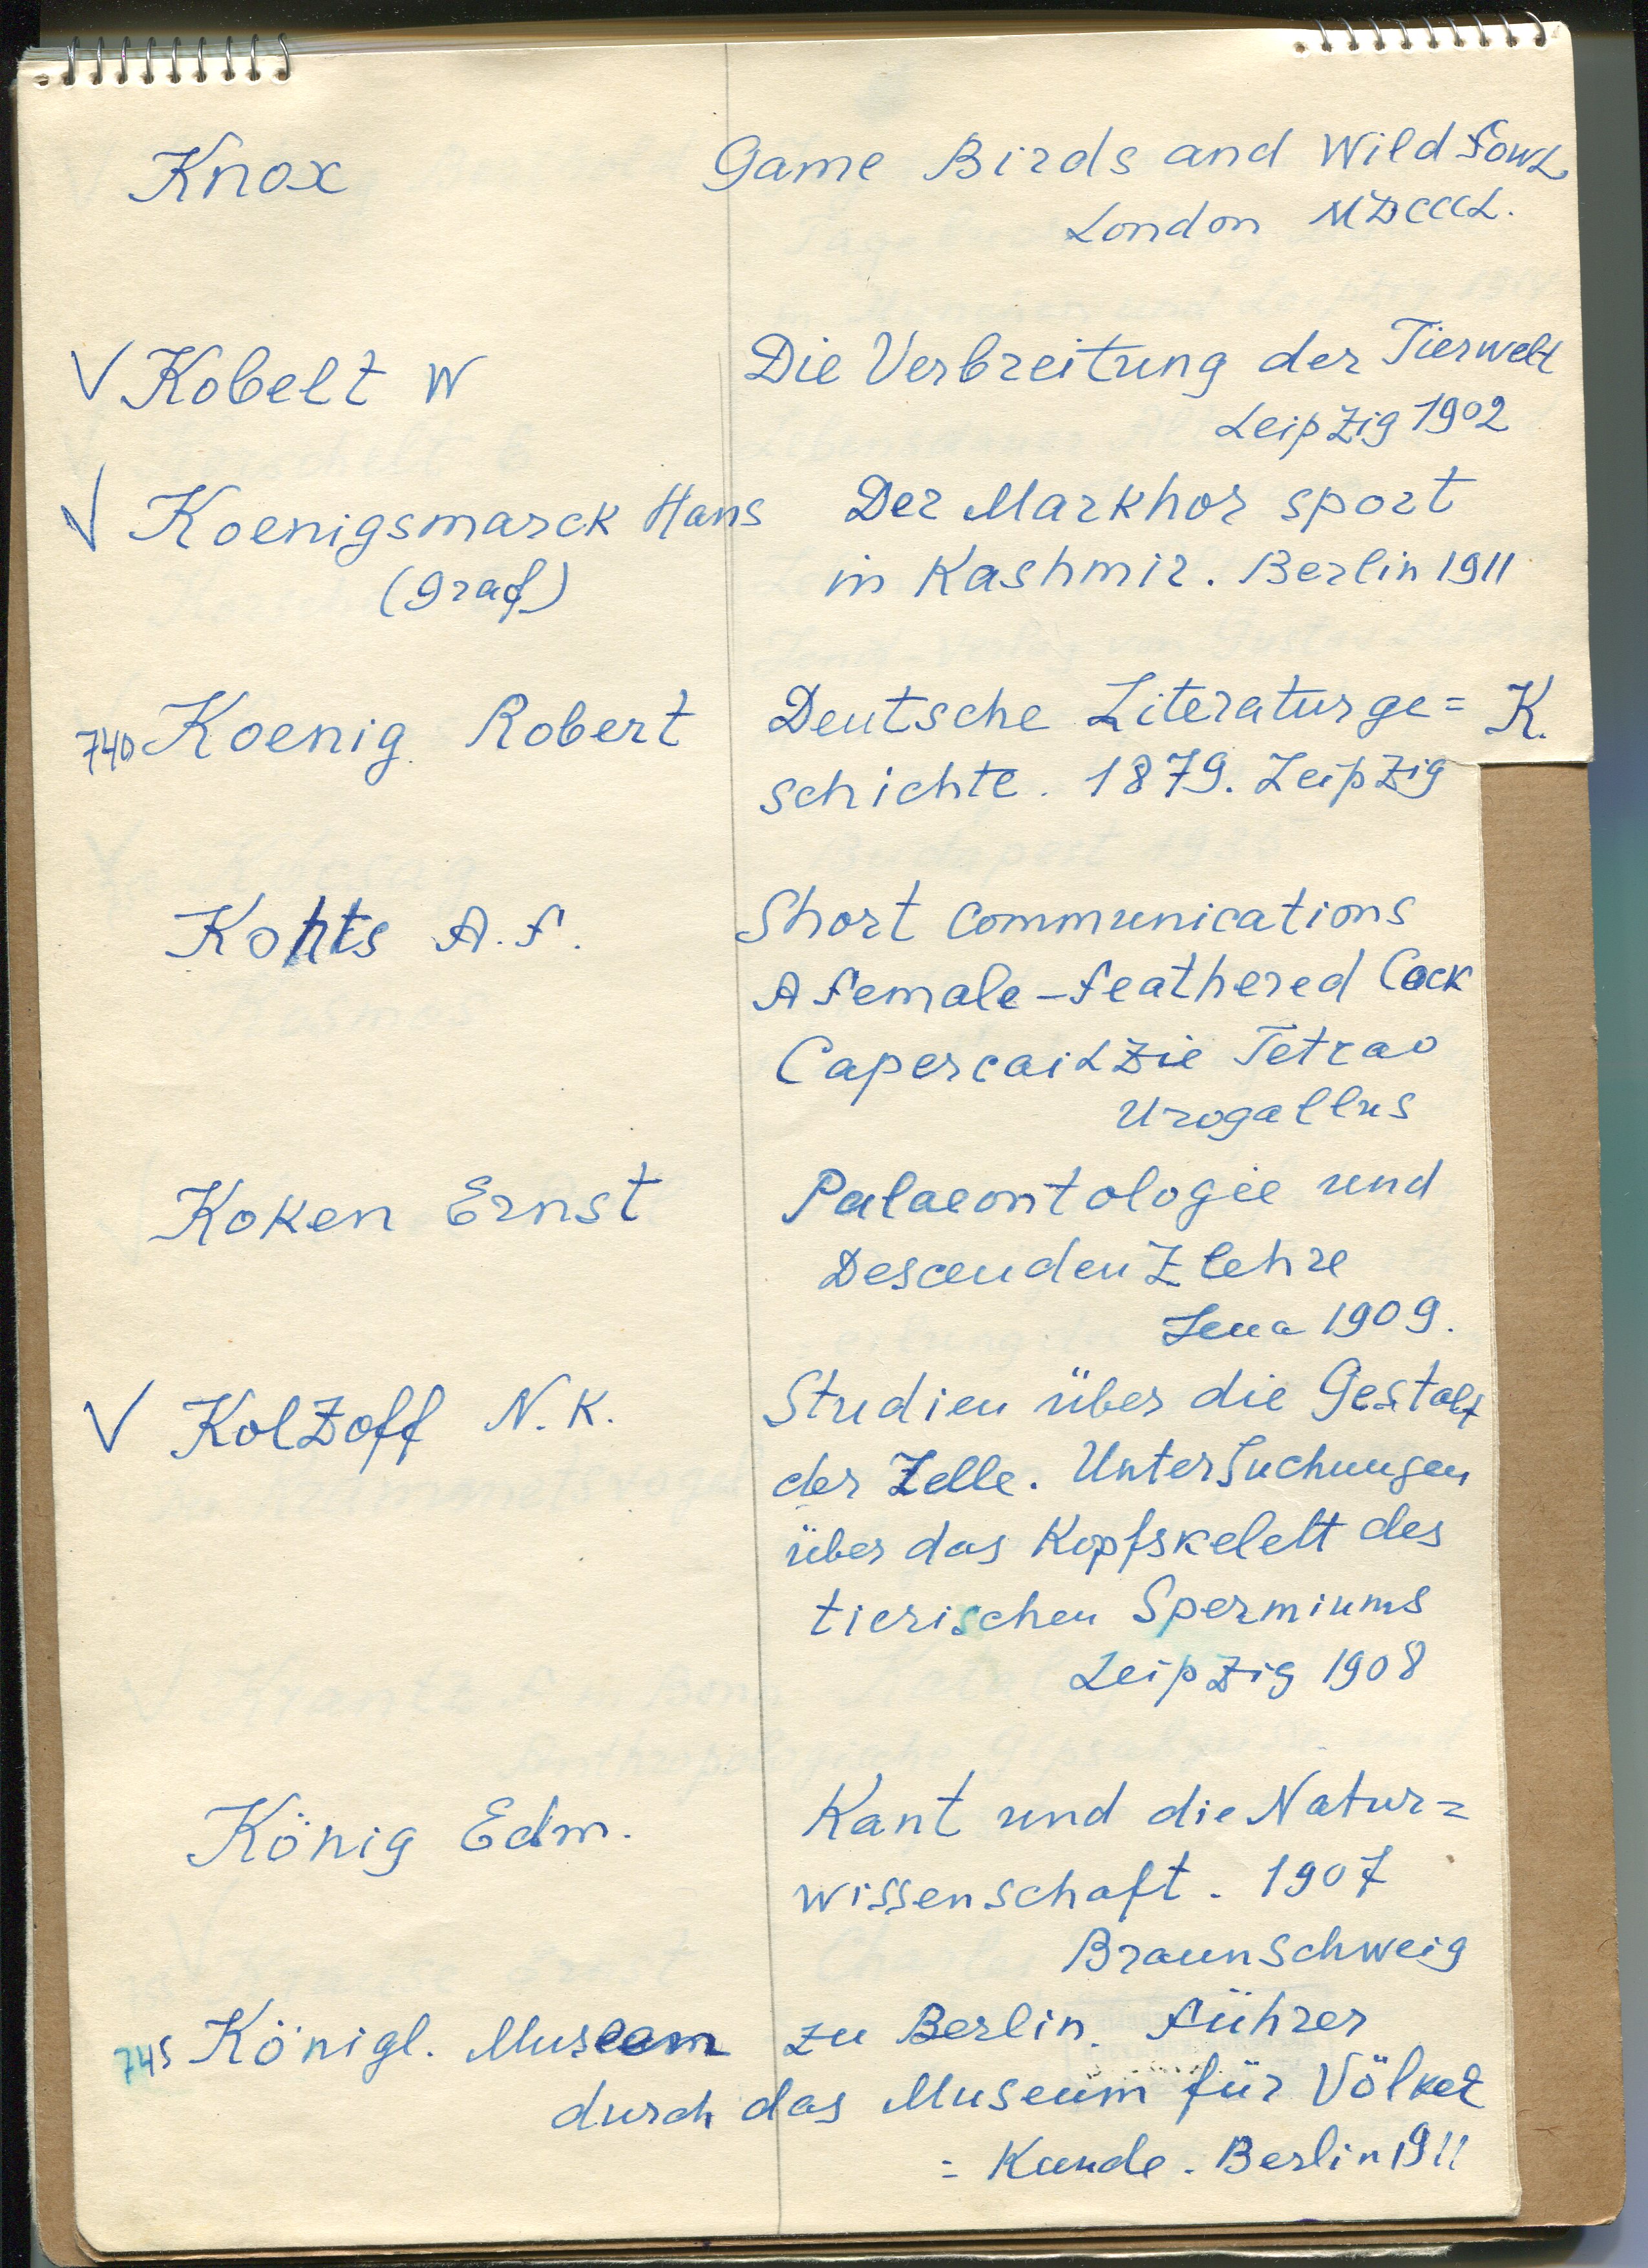 Knox Game Birds and Wild Fowl
London MDCCCL.
V Kobelt W Die Verbreitung der Tierwelt
Leipzig 1902
V Koenigsmarck Hans Der Markhor sport
(Graf) in Kashmir. Berlin 1911
740 Koenig Robert Deutsche Literaturge= K.
schichte. 1879. Leipzig
Kohts A.F. Short Communications
A Female-Feathered Cock
Capercailzie Tetrao
Urogallus
Koken Ernst Palaeontologie und
Descendenzlehre
Jena 1909.
V Kolzoff N.K. Studien über die Gestalt
der Zelle. Untersuchungen
über das Kopfskelett des
tierischen Spermiums
Leipzig 1908
König Edm. Kant und die Natur=
wissenschaft. 1907
Braunschweig
745 Königl. Museum zu Berlin. Führer
durch das Museum für Völker
= Kunde. Berlin 1911